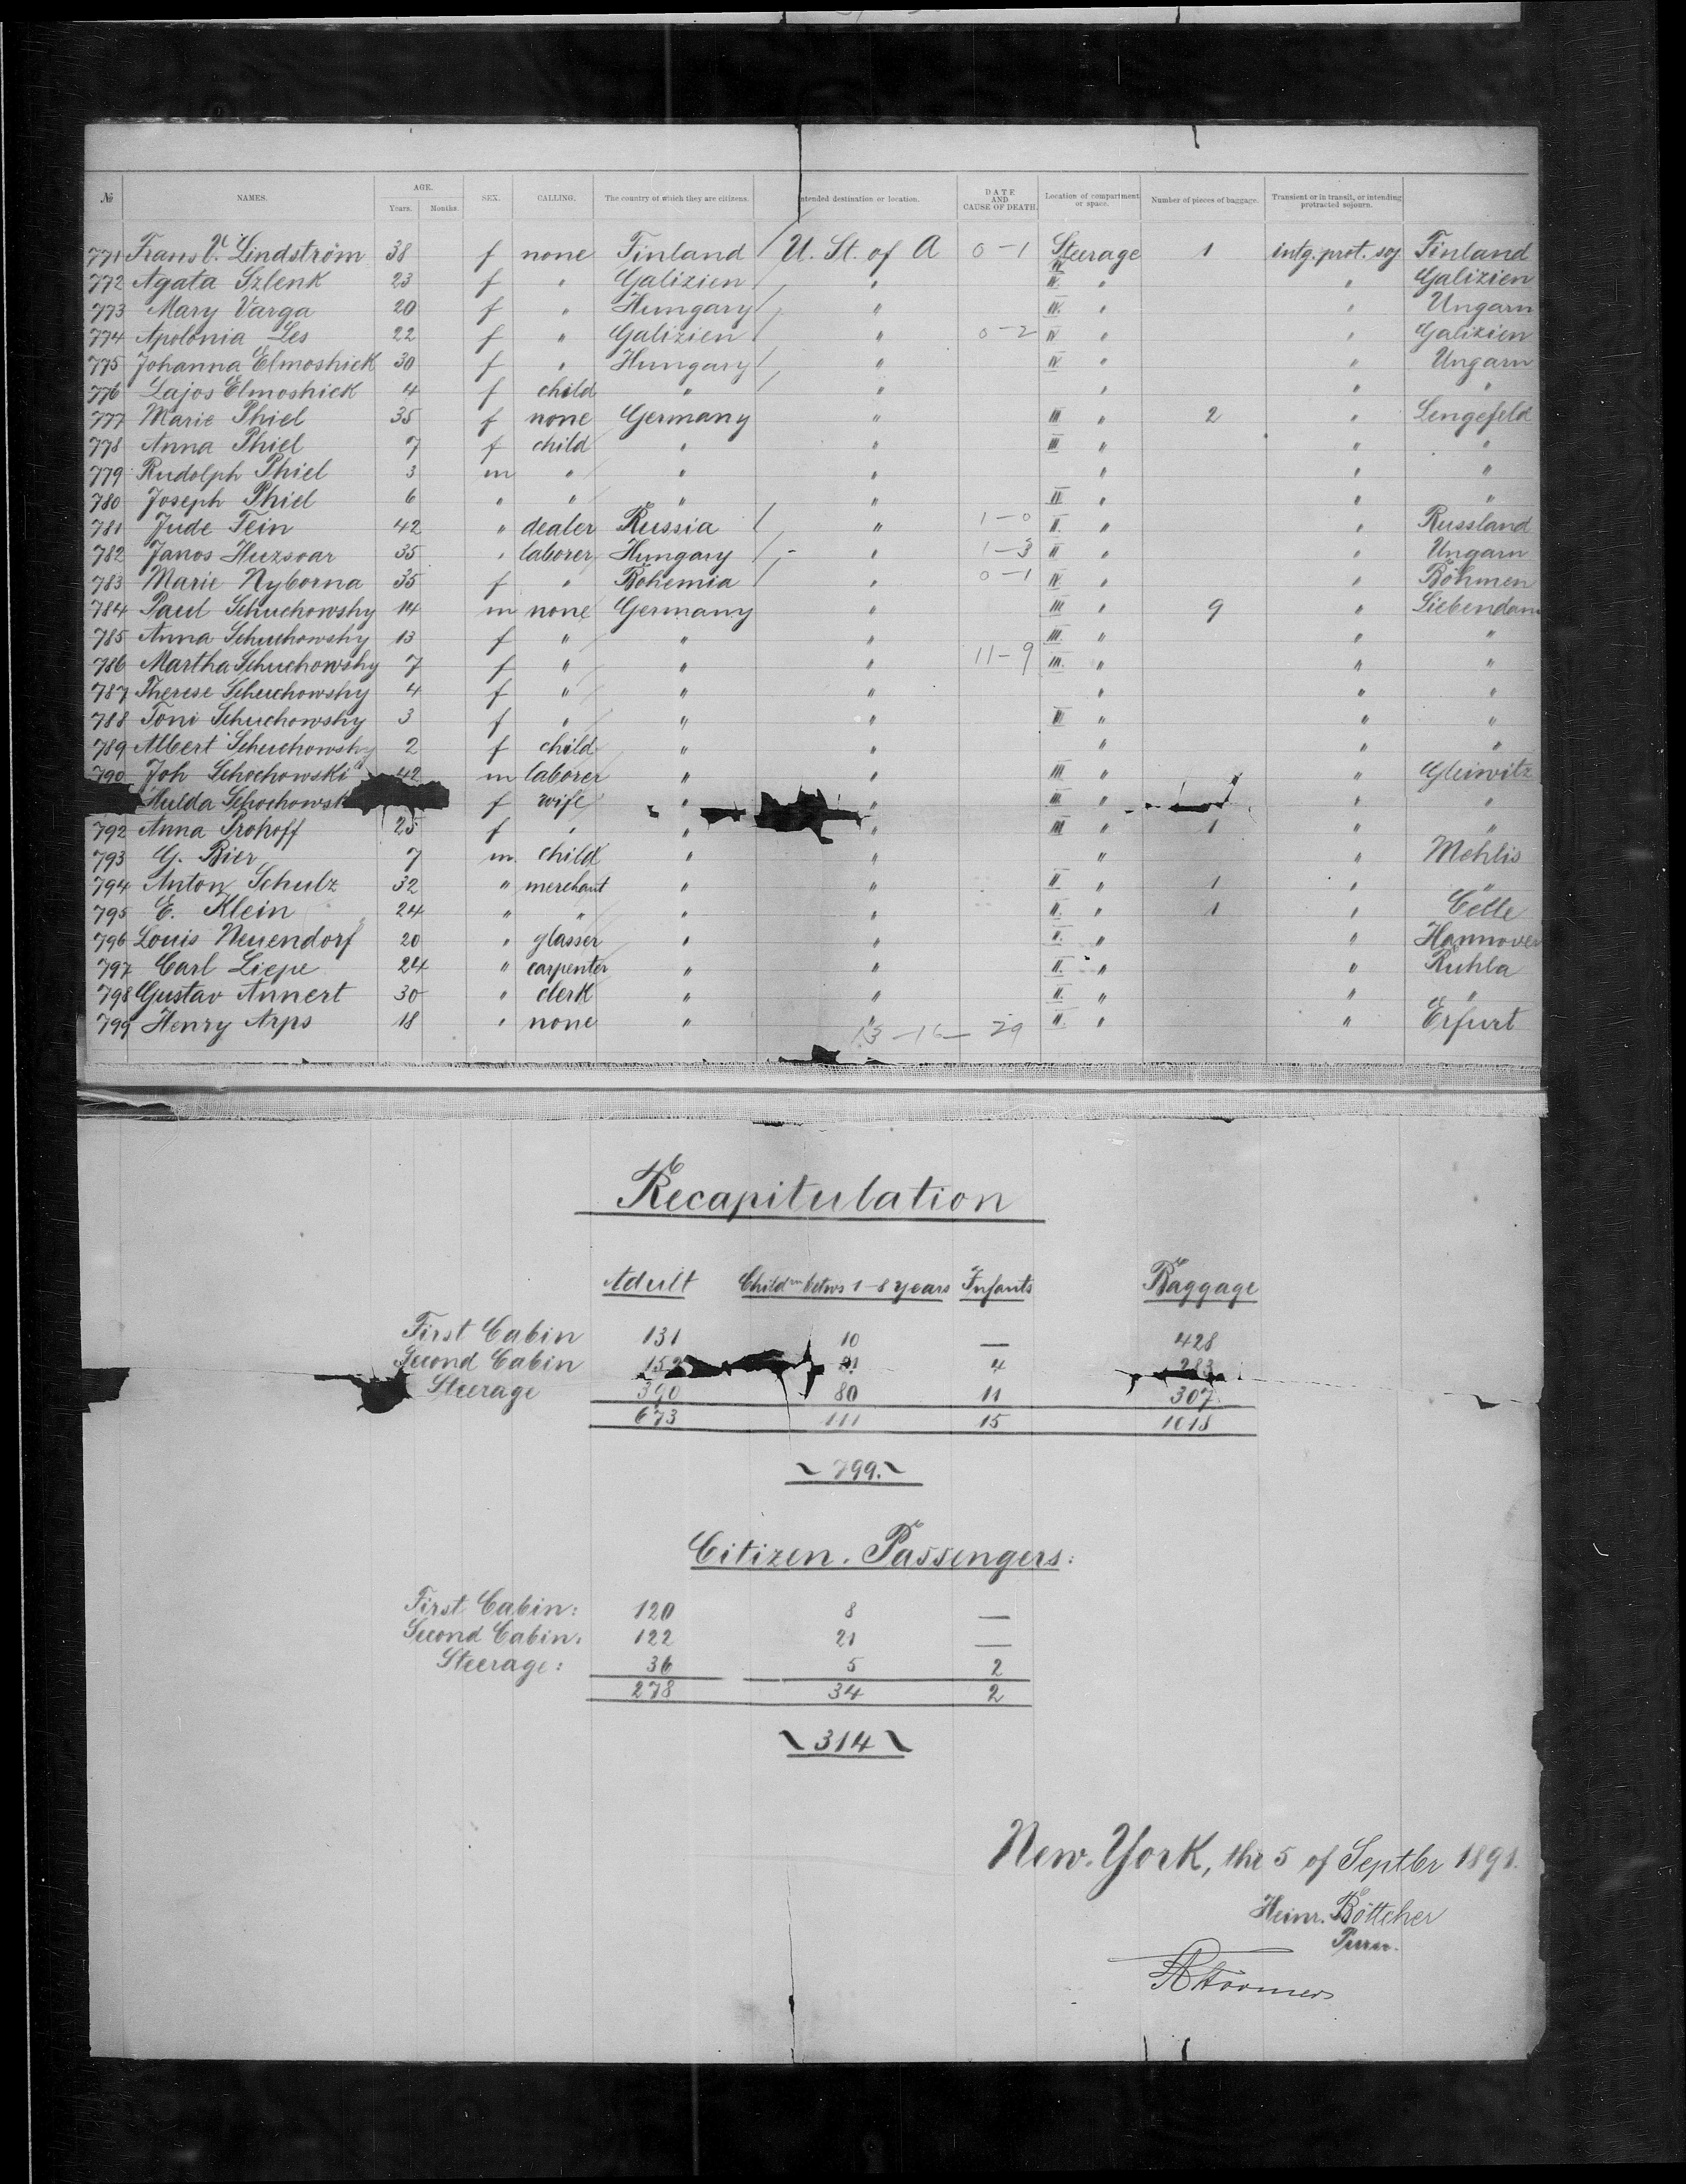 № NAMES. AGE. Years. Months. SEX. CALLING. The country of which they are citizens. Intended destination or location. DATE AND CAUSE OF DEATH. Location of compartment or space. Number of pieces of baggage. Transient or in transit, or intending protracted sojourn.
771 Frans V. Lindström 38 f none Finland / U. St. of A 0-1 Steerage IV. 1 intg. prot. soj Finland
772 Agata Szlenk 23 f " Galizien / " IV. " " Galizien
773 Mary Varga 20 f " Hungary / " IV. " " Ungarn
774 Apolonia Les 22 f " Galizien / " 0-2 IV " " Galizien
775 Johanna Elmoshick 30 f " Hungary / " IV. " " Ungarn
776 Lajos Elmoshick 4 f child " / " " " "
777 Marie Phiel 35 f none Germany " III " 2 " Lengefeld
778 Anna Phiel 7 f child " " III " " "
779 Rudolph Phiel 3 m " " " " " "
780 Joseph Phiel 6 " " " " II " " "
781 Jude Fein 42 " dealer Russia / " 1-0 II. " " Russland
782 Janos Huzsvar 35 " laborer Hungary / " 1-3 II " " Ungarn
783 Marie Nyborna 35 f " Bohemia / " 0-1 IV. " " Böhmen
784 Paul Schuchowshy 14 m none Germany " III " 9 " Liebendam
785 Anna Schuchowshy 13 f " " " III. " " "
786 Martha Schuchowshy 7 f " " " 11-9 III. " " "
787 Therese Schuchowshy 4 f " " " " " "
788 Toni Schuchowshy 3 f " " " III " " "
789 Albert Schuchowshy 2 f child " " " " "
790 Joh Schochowski 42 m laborer " " III " " Gleiwitz
Hulda Schochowsk f wife " " III " " "
792 Anna Prohoff 25 f " " " III " 1 " "
793 G. Bier 7 m child " " " " Mehlis
794 Anton Schulz 32 " merchant " " II " 1 " "
795 E. Klein 24 " " " " II. " 1 " Celle
796 Louis Neuendorf 20 " glasser " " II. " " Hannover
797 Carl Liepe 24 " carpenter " " II. " " Ruhla
798 Gustav Annert 30 " clerk " " II. " " "
799 Henry Arps 18 " none " " II. " " Erfurt
13-16-29
Recapitulation
Adult Childrn betws 1-8 years Infants Baggage
First Cabin 131 10 — 428
Second Cabin 152 21 4 283
Steerage 390 80 11 307.
673 111 15 1018
~ 799. ~
Citizen. Passengers:
First Cabin: 120 8 —
Second Cabin: 122 21 —
Steerage: 36 5 2
278 34 2
~ 314 ~
New. York, the 5 of Septbr 1891.
Heinr. Böttcher